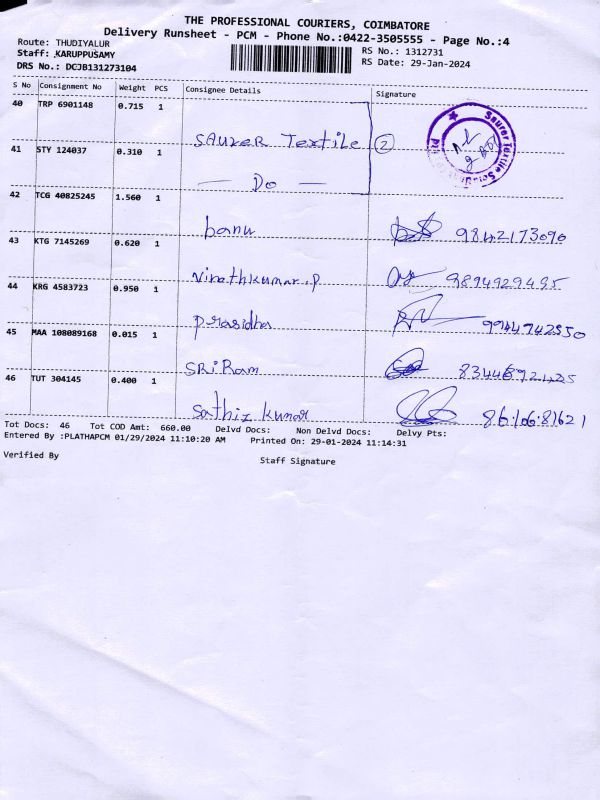 THE PROFESSIONAL COURIERS, COIMBATORE
Delivery Runsheet - PCM - Phone No.:0422-3505555 - Page No.:4
Route: THUDIYALUR
Staff: KARUPPUSAMY
DRS No.: DCJB131273104
RS No.: 1312731
RS Date: 29-Jan-2024
S No Consignment No Weight PCS Consignee Details Signature
40 TRP 6901148 0.715 1
SAURER Textile 2
Saurer Textile
41 STY 124037 0.310 1
— Do —
42 TCG 40825245 1.560 1
banu 9842173090
43 KTG 7145269 0.620 1
Virathkumar.P 9894929495
44 KRG 4583723 0.950 1
Prasidha 9944742550
45 MAA 108089168 0.015 1
SRi Ram
46 TUT 304145 0.400 1
Sathiz kumar
Tot Docs: 46 Tot COD Amt: 660.00 Delvd Docs: Non Delvd Docs: Delvy Pts:
Entered By :PLATHAPCM 01/29/2024 11:10:20 AM Printed On: 29-01-2024 11:14:31
Verified By
Staff Signature